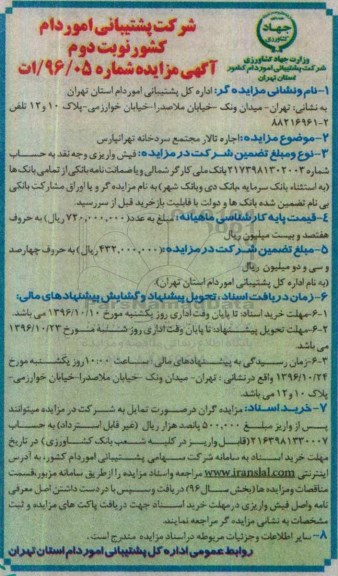 شرکت پشتیبانی امور دام
کشور نوبت دوم
آگهی مزایده شماره ۹۶/۰۵/ات
جهاد
کشاورزی
وزارت جهاد کشاورزی
شرکت پشتیبانی امور دام کشور
استان تهران
۱-نام ونشانی مزایده گر: اداره کل پشتیبانی امور دام استان تهران
به نشانی: تهران- میدان ونک -خیابان ملاصدرا-خیابان خوارزمی-پلاک ۱۰ و۱۲ تلفن
۸۸۲۱۶۹۶۱-۲
۲-موضوع مزایده: اجاره تالار مجتمع سردخانه تهرانپارس
۳-نوع ومبلغ تضمین شرکت در مزایده: فیش واریزی وجه نقد به حساب
شماره ۲۱۷۳۹۸۱۳۰۲۰۰۳ بانک ملی کارگر شمالی ویا ضمانت نامه بانکی از تمامی بانک ها
(به استثناء بانک سرمایه ،بانک دی وبانک شهر) به نام مزایده گر و یا اوراق مشارکت بانکی
بی نام تضمین شده بانک ها و دولت با قابلیت بازخرید قبل از سررسید.
۴-قیمت پایه کارشناسی ماهیانه: مبلغ به عدد(۷۲۰,۰۰۰,۰۰۰ ریال) به حروف
هفتصد و بیست میلیون ریال
۵-مبلغ تضمین شرکت در مزایده: (۴۳۲,۰۰۰,۰۰۰ ریال) به حروف چهارصد
و سی و دو میلیون ریال
(به نام اداره کل پشتیبانی امور دام استان تهران)
۶-زمان دریافت اسناد، تحویل پیشنهاد و گشایش پیشنهادهای مالی:
۶-۱-مهلت خرید اسناد: تا پایان وقت اداری روز یکشنبه مورخ ۱۳۹۶/۱۰/۱۰ می باشد.
۶-۲-مهلت تحویل پیشنهاد: تا پایان وقت اداری روز شنبه مورخ ۱۳۹۶/۱۰/۲۳
می باشد.
۶-۳-زمان رسیدگی به پیشنهادهای مالی: ساعت ۱۰:۰۰ روز یکشنبه مورخ
۱۳۹۶/۱۰/۲۴ واقع در نشانی: تهران- میدان ونک -خیابان ملاصدرا-خیابان خوارزمی-
پلاک ۱۰ و۱۲ می باشد.
۷-خرید اسناد: مزایده گران درصورت تمایل به شرکت در مزایده میتوانند
پس از واریز مبلغ ۵۰۰,۰۰۰ پانصد هزار ریال (غیر قابل استرداد) به حساب
۲۱۶۳۹۸۱۳۳۰۰۰۷ (قابل واریز در کلیه شعب بانک کشاورزی) در تاریخ
مهلت خرید اسناد به سامانه شرکت سهامی پشتیبانی امور دام کشور، به آدرس
اینترنتی www.iranslal.com مراجعه واسناد مزایده را از طریق سامانه مزبور،قسمت
مناقصات ومزایده ها (بخش سال ۹۶) دریافت وسپس با در دست داشتن اصل معرفی
نامه واصل فیش واریزی در مهلت خرید اسناد جهت دریافت پاکت های مزایده و ثبت
مشخصات به نشانی مزایده گر مراجعه نمایند.
۸-سایر اطلاعات وجزئیات مربوطه دراسناد مزایده مندرج است.
روابط عمومی اداره کل پشتیبانی امور دام استان تهران